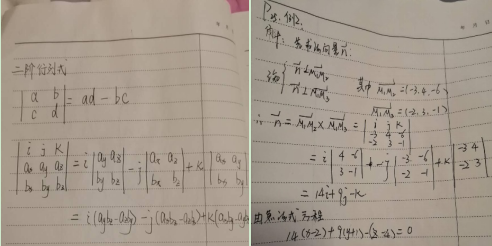 二阶行列式
| a b |
| c d | = ad - bc
| i j k |
| ax ay az |
| bx by bz | = i | ay az | - j | ax az | + k | ax ay |
| by bz | | bx bz | | bx by |
= i(aybz - azby) - j(axbz - azbx) + k(axby - aybx
P25. 例2.
解: 先求法向量 n:
n ⊥ M1M2 其中 M1M2 = (-3, 4, -6)
n ⊥ M1M3 M1M3 = (-2, 3, -1)
∴ n = M1M2 × M1M3 = | i j k |
| -3 4 -6 |
| -2 3 -1 |
= i | 4 -6 | + -j | -3 -6 | + k | -3 4 |
| 3 -1 | | -2 -1 | | -2 3 |
= 14i + 9j - k
由点法式方程
14(x-2) + 9(y+1) - (z-4) = 0